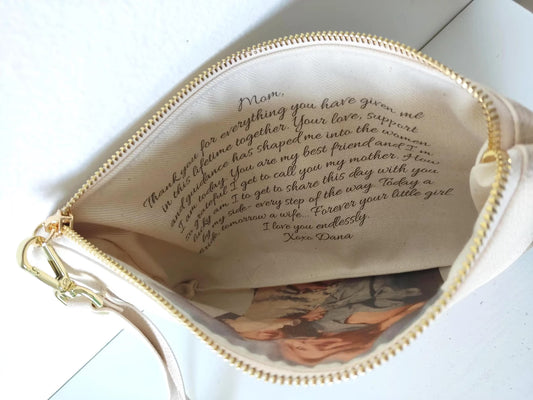 Mom,
Thank you for everything you have given me
in this lifetime together. Your love, support
and guidance has shaped me into the women
I am today. You are my best friend and I'm
so grateful I get to call you my mother. How
lucky am I to get to share this day with you
by my side- every step of the way. Today a
bride, tomorrow a wife... Forever your little girl
I love you endlessly
Xoxo Dana